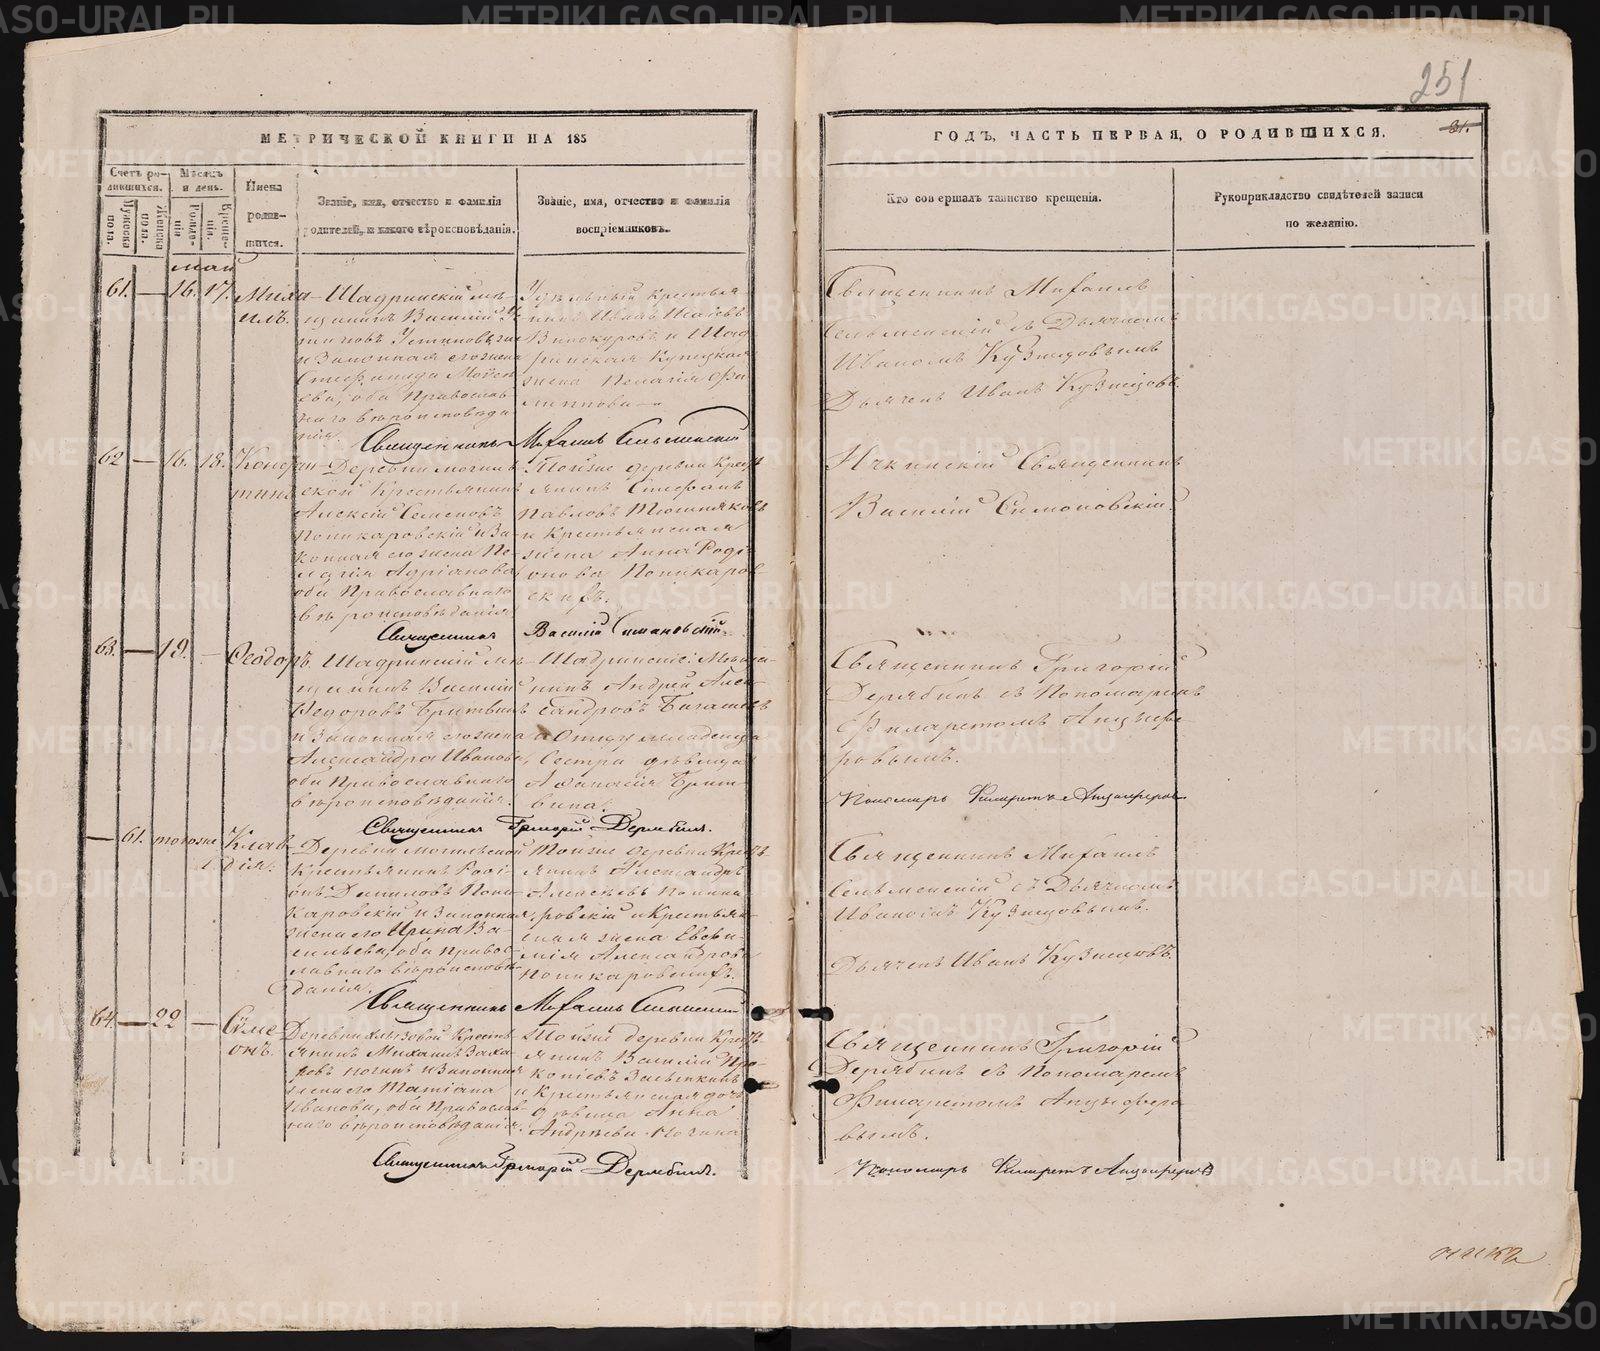 251
МЕТРИЧЕСКОЙ КНИГИ НА 185
ГОДЪ, ЧАСТЬ ПЕРВАЯ, О РОДИВШИХСЯ.
31.
Счетъ ро-
дившихся.
Мужеска
пола.
Женска
пола.
Мѣсяцъ
и день.
Рожде-
нія.
Креще-
нія.
Имена
родив-
шихся.
Званіе, имя, отчество и фамилія
родителей, и какого вѣроисповѣданія.
Званіе, имя, отчество и фамилія
воспріемниковъ.
Кто совершалъ таинство крещенія.
Рукоприкладство свидѣтелей записи
по желанію.
май
61. — 16. 17. Миха-
илъ.
Шадринскій мѣ-
щанинъ Василій Ус-
тиновъ Устиновъ
и Законная его жена
Стефанида Моисе
ева, оба Православ-
наго вѣроисповѣда
нія.
Удѣльный крестья
нинъ Иванъ Исаевъ
Винокуровъ и Шад
ринская Купецкая
жена Пелагія Фи
липпова
Священникъ Михаилъ
Сельменскій съ Дьячкомъ
Иваномъ Кузнецовымъ
Дьячекъ Иванъ Кузнецовъ.
Священникъ Михаилъ Сельменскій
62 — 16. 18. Констан-
тинъ
Деревни Могилев
ской Крестьянинъ
Алексій Семеновъ
Поникаровскій и За-
конная его жена Пе-
лагія Адріанова
оба Православнаго
вѣроисповѣданія
Тойже деревни Крест
янинъ Стефанъ
Павловъ Тюшняковъ
и Крестьянская
жена Анна Родi
онова Поникаров-
скихъ.
Ичкинскій Священникъ
Василій Симоновскій
Священникъ Василій Симановскій
63. — 19. — Ѳеодоръ.
Шадринскій мѣ-
щанинъ Василій
Ѳедоровъ Бритвинъ
и Законная его жена
Александра Иванова
оба Православнаго
вѣроисповѣданія.
Шадринскіе: Мѣща-
нинъ Андрей Алек-
сандровъ
и Отцу младенца
Сестра дѣвица
Аѳанасія Брит-
вина.
Священникъ Григорій
Дерябинъ съ Пономаремъ
Филаретомъ Анцыфе-
ровымъ.
Пономарь Филаретъ Анцыферовъ
Священникъ Григорій Дерябинъ.
— 61. тогоже Клав-
дія.
Деревни Могилевской
Крестьянинъ Родi-
онъ Даниловъ Пони-
каровскій и Законная
жена его Ирина Ва-
сильева, оба Правос-
лавнаго вѣроисповѣ-
данія.
Тойже деревни Крест
янинъ Александръ
Алексѣевъ Поника
ровскій и Крестьян-
ская жена Евфи-
мія Александрова
Поникаровскихъ.
Священникъ Михаилъ
Сельменскій съ Дьячкомъ
Иваномъ Кузнецовымъ.
Дьячекъ Иванъ Кузнецовъ.
Священникъ Михаилъ Сельменскій
64. — 22 — Сѵме
онъ.
Деревни Хлызовой Кресть
янинъ Михаилъ Заха
ровъ и Законная
жена его Татіана
Иванова, оба Православ-
наго вѣроисповѣданія.
Тойже деревни Крест
янинъ Василій Про-
копіевъ Засыпкинъ
и Крестьянская дочь
дѣвица Анна
Андрѣева
Священникъ Григорій
Дерябинъ съ Пономаремъ
Филаретомъ Анцыферо-
вымъ.
Священникъ Григорій Дерябинъ.
Пономарь Филаретъ Анцыферовъ